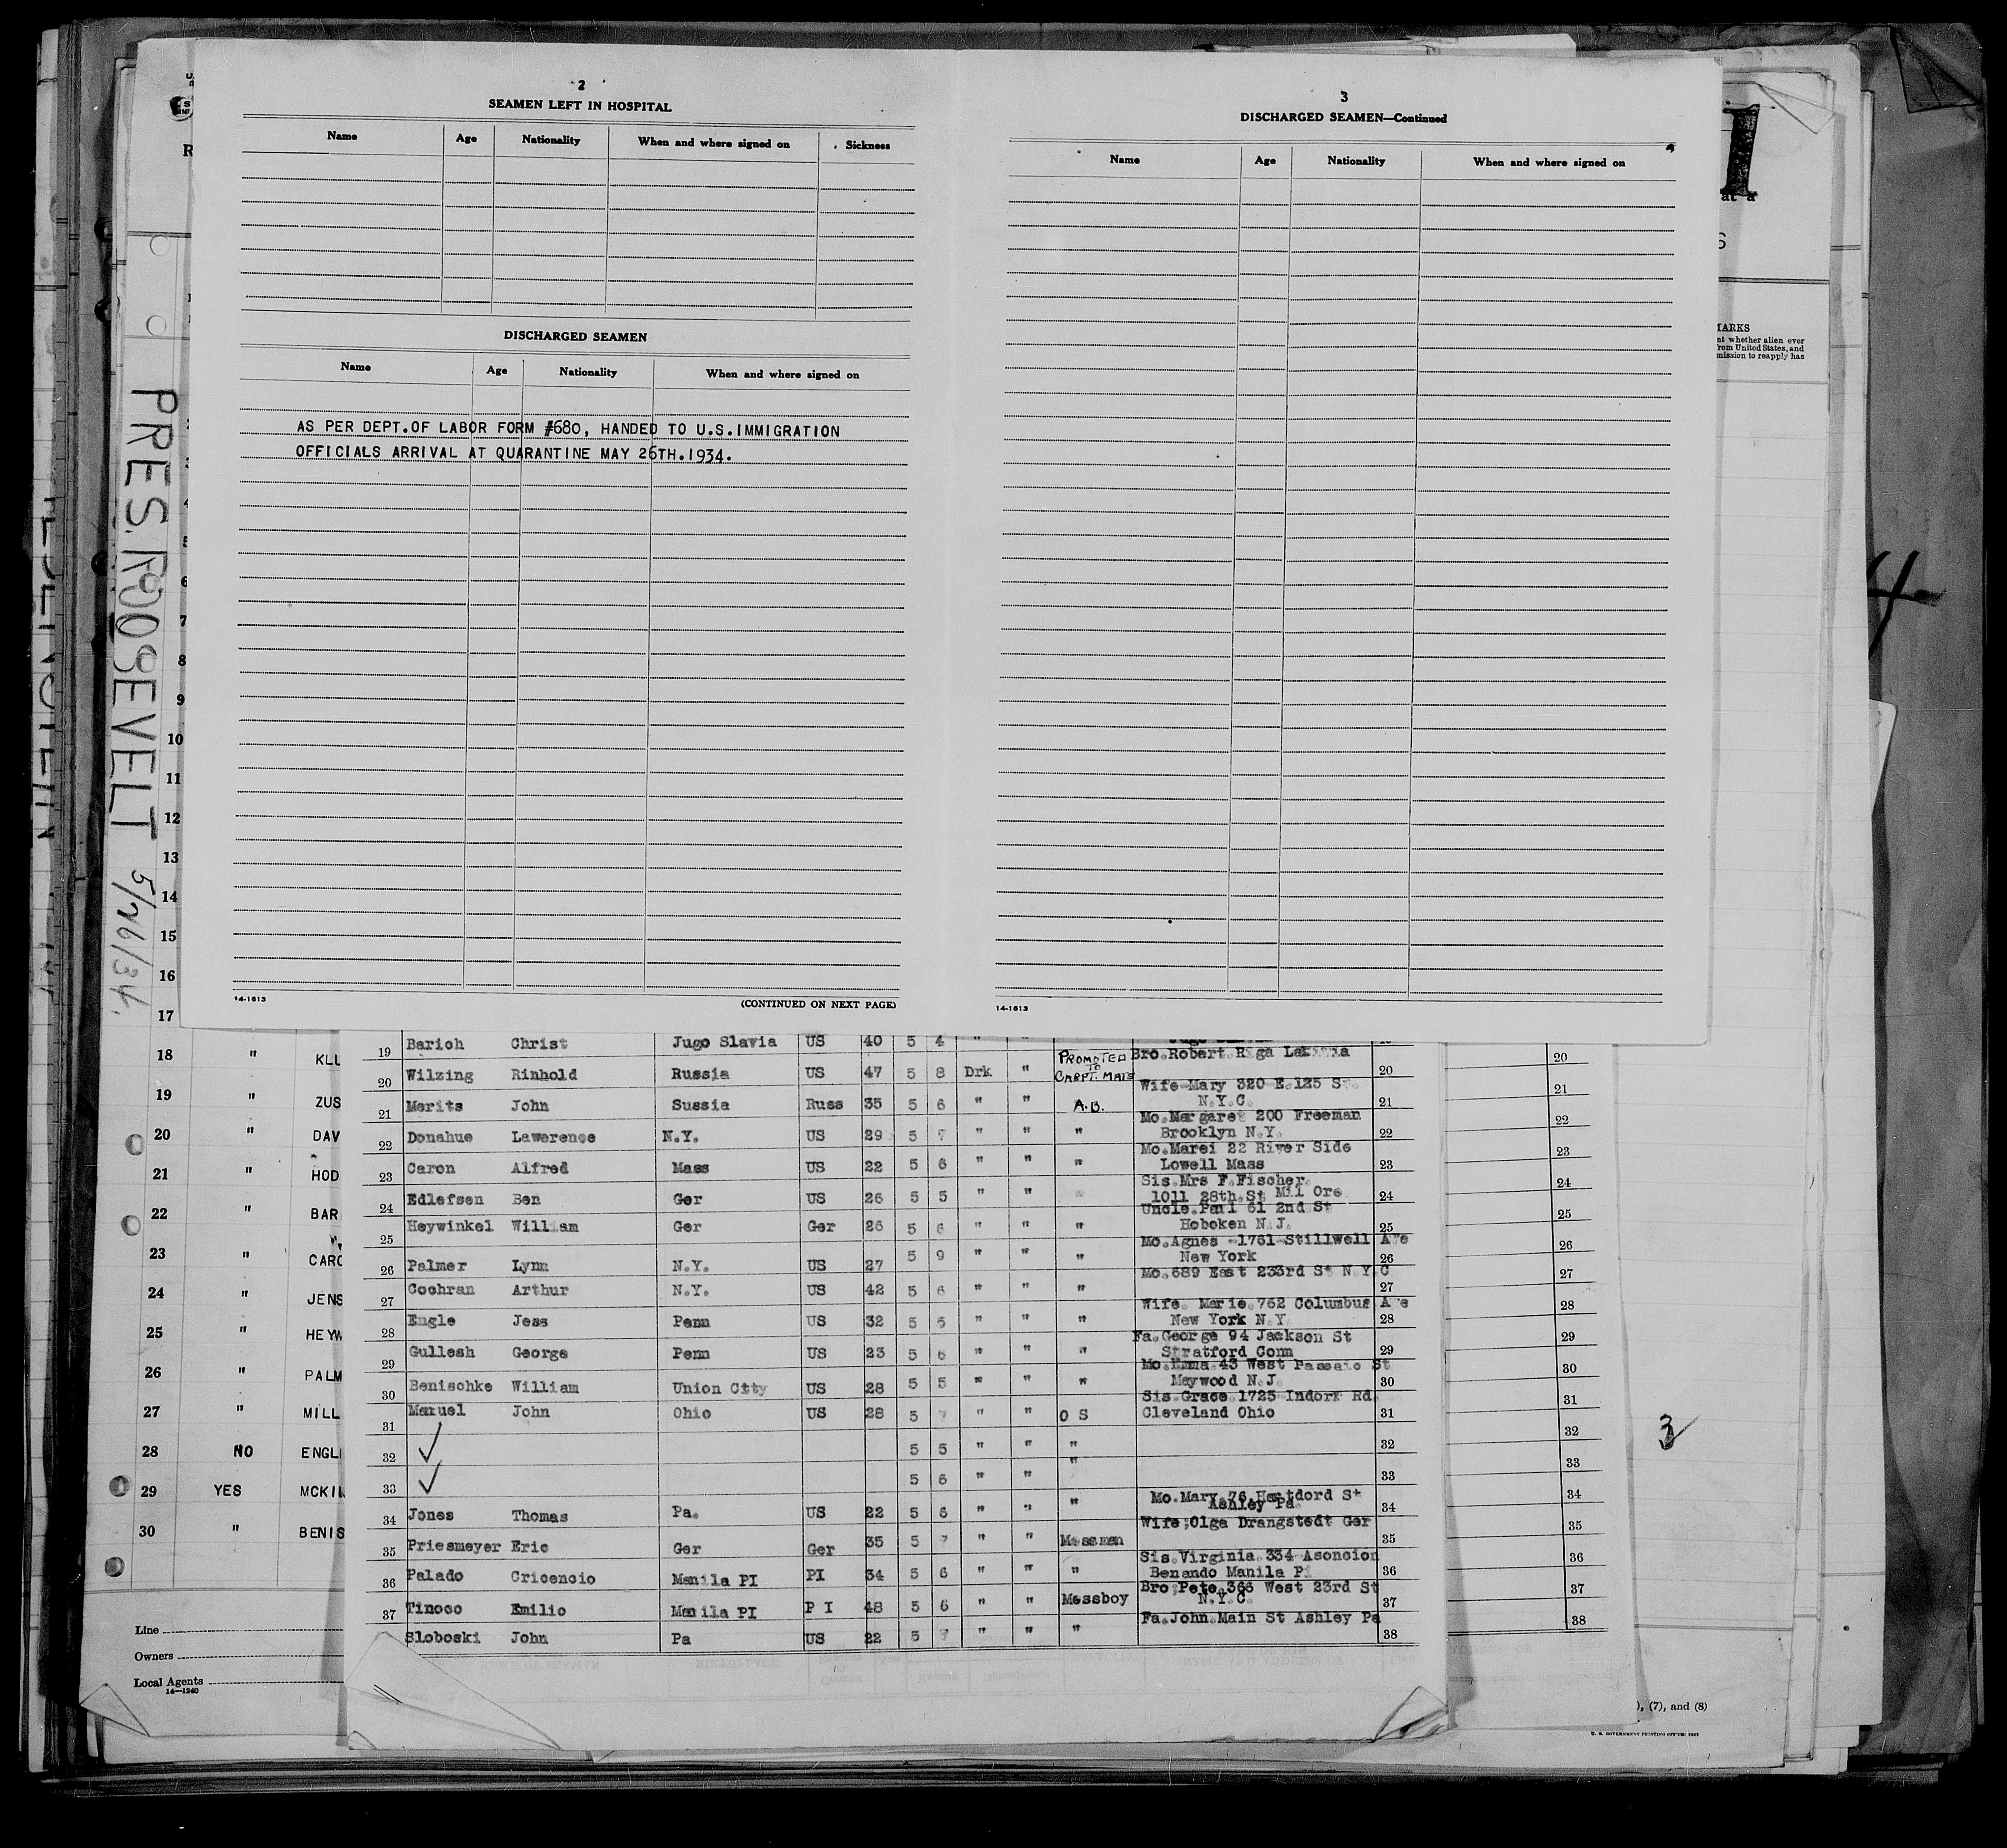 2
SEAMEN LEFT IN HOSPITAL
Name Age Nationality When and where signed on Sickness
DISCHARGED SEAMEN
Name Age Nationality When and where signed on
AS PER DEPT.OF LABOR FORM #680, HANDED TO U.S.IMMIGRATION
OFFICIALS ARRIVAL AT QUARANTINE MAY 26TH.1934.
14-1613
(CONTINUED ON NEXT PAGE)
3
DISCHARGED SEAMEN—Continued
Name Age Nationality When and where signed on
14-1613
PRES. ROOSEVELT 5/26/34.
at a
MARKS
nt whether alien ever
from United States, and
mission to reapply has
4
5
6
7
8
9
10
11
12
13
14
15
16
17
18 " KLU
19 " ZUS
20 " DAV
21 " HOD
22 " BAR
23 " CARO
24 " JENS
25 " HEYW
26 " PALM
27 " MILL
28 NO ENGL
29 YES MCKIN
30 " BENIS
Line
Owners
Local Agents
14—1240
19 Barich Christ Jugo Slavia US 40 5 4 " "
Bro.Robert Riga
20 Wilzing Rinhold Russia US 47 5 8 Drk " PROMOTED TO CARPT. MATE 20
Wife-Mary 320 E.125 St.
21 Merits John Sussia Russ 35 5 6 " " A.B. N.Y.C. 21
Mo.Margaret 200 Freeman
22 Donahue Lawerence N.Y. US 29 5 7 " " " Brooklyn N.Y. 22
Mo.Marei 22 River Side
23 Caron Alfred Mass US 22 5 6 " " " Lowell Mass 23
Sis.Mrs F.Fischer
24 Edlefsen Ben Ger US 26 5 5 " " " 1011 28th.St Mil Ore 24
Uncle.Paul 61 2nd St
25 Heywinkel William Ger Ger 26 5 6 " " " Hoboken N.J. 25
Mo.Agnes -1761-Stillwell Ave
26 Palmer Lynn N.Y. US 27 5 9 " " " New York 26
Mo.689 East 233rd St N.Y.C
27 Cochran Arthur N.Y. US 42 5 6 " " " 27
Wife. Marie.762 Columbus Ave
28 Engle Jess Penn US 32 5 5 " " " New York N.Y. 28
Fa.George 94 Jackson St
29 Gullesh George Penn US 23 5 6 " " " Stratford Conn 29
Mo.Emma.43 West Passaic St
30 Benischke William Union City US 28 5 5 " " " Maywood N.J. 30
Sis.Grace.1725 Indork Rd.
31 Manuel John Ohio US 28 5 7 " " O S Cleveland Ohio 31
32 ✓ 5 5 " " " 32
33 ✓ 5 6 " " " 33
Mo.Mary.76.Hartdord St
34 Jones Thomas Pa. US 22 5 6 " " " Ashley Pa. 34
Wife;Olga Drangstedt Ger
35 Priesmeyer Eric Ger Ger 35 5 7 " " Messman 35
Sis.Virginia.334-Asoncion
36 Palado Cricencio Manila PI PI 34 5 6 " " " Benando Manila P. 36
Bro;Pete.366 West 23rd St
37 Tinoco Emilio Manila PI P I 48 5 6 " " Messboy N.Y.C. 37
Fa.John.Main St Ashley Pa
Sloboski John Pa US 22 5 7 " " " 38
20
21
22
23
24
25
26
27
28
29
30
31
32
33
34
35
36
37
38
4
3
), (7), and (8)
U. S. GOVERNMENT PRINTING OFFICE